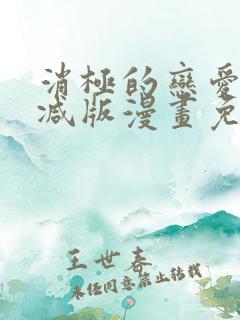 消極的戀愛
減版漫畫免
王世春
未任同意禁止转载